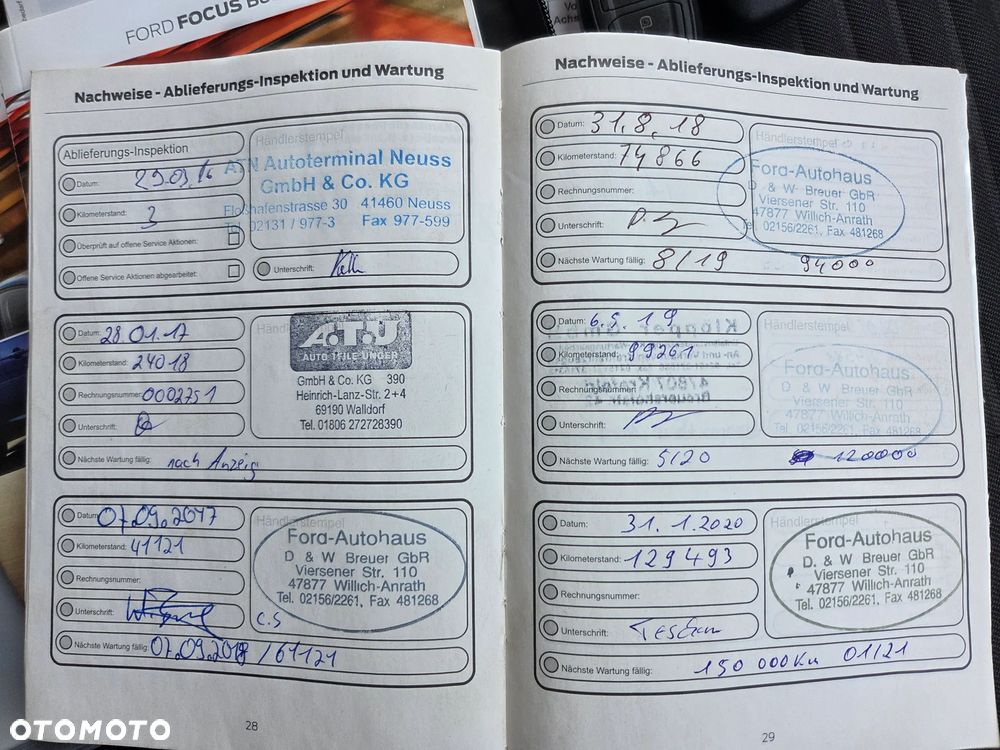 FORD FOCUS
Nachweise - Ablieferungs-Inspektion und Wartung
Ablieferungs-Inspektion
Datum: 29.03.16
Kilometerstand: 3
Überprüft auf offene Service Aktionen:
Offene Service Aktionen abgearbeitet:
Händlerstempel
ATN Autoterminal Neuss
GmbH & Co. KG
Floßhafenstrasse 30 41460 Neuss
Tel. 02131 / 977-3 Fax 977-599
Unterschrift:
Datum: 28.01.17
Kilometerstand: 24018
Rechnungsnummer: 0002751
Unterschrift:
Nächste Wartung fällig: nach Anzeig
A.T.U
AUTO TEILE UNGER
GmbH & Co. KG 390
Heinrich-Lanz-Str. 2+4
69190 Walldorf
Tel. 01806 272728390
Datum: 07.09.2017
Kilometerstand: 41121
Rechnungsnummer:
Unterschrift:
C.S
Nächste Wartung fällig: 07.09.2018 / 61121
Händlerstempel
Ford-Autohaus
D. & W Breuer GbR
Viersener Str. 110
47877 Willich-Anrath
Tel. 02156/2261, Fax 481268
28
Nachweise - Ablieferungs-Inspektion und Wartung
Datum: 31.8.18
Kilometerstand: 74866
Rechnungsnummer:
Unterschrift:
Nächste Wartung fällig: 8/19 94000
Händlerstempel
Ford-Autohaus
D. & W Breuer GbR
Viersener Str. 110
47877 Willich-Anrath
Tel. 02156/2261, Fax 481268
Datum: 6.5.19
Kilometerstand: 99261
Rechnungsnummer:
Unterschrift:
Nächste Wartung fällig: 5/20 120000
Händlerstempel
Ford-Autohaus
D & W Breuer GbR
Viersener Str. 110
47877 Willich-Anrath
Tel. 02156/2261, Fax 481268
Datum: 31.1.2020
Kilometerstand: 129493
Rechnungsnummer:
Unterschrift:
Nächste Wartung fällig: 150 000Km 01/21
Händlerstempel
Ford-Autohaus
D. & W Breuer GbR
Viersener Str. 110
47877 Willich-Anrath
Tel. 02156/2261, Fax 481268
29
OTOMOTO